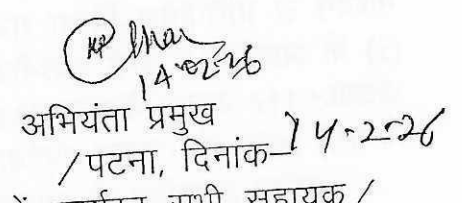 14-02-26
अभियंता प्रमुख
/ पटना, दिनांक- 14-2-26
सभी सहायक /